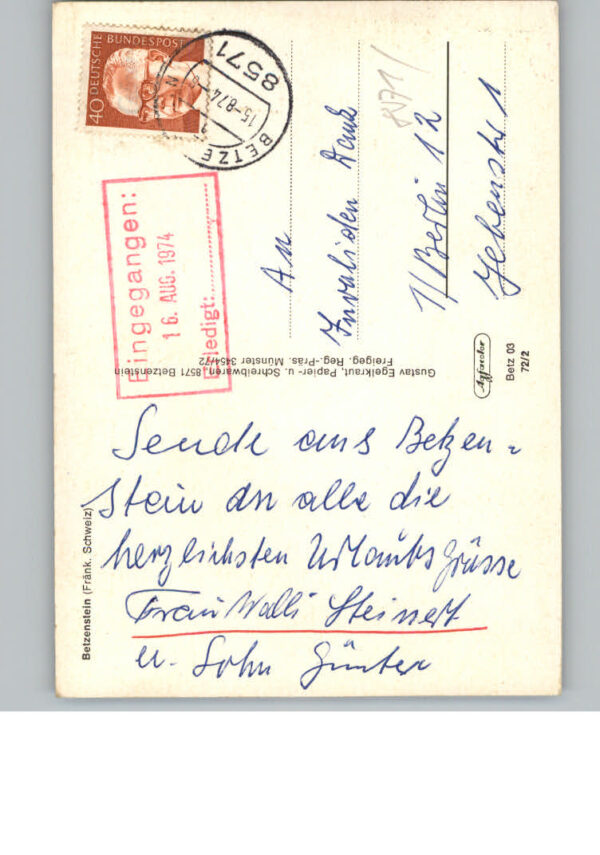 Sende aus Betzen=
stein an alle die
herzlichsten Urlaubsgrüsse
Frau Walli Steinert
u. Sohn Günter
Betzenstein (Fränk. Schweiz)
Gustav Egelkraut, Papier- u. Schreibwaren, 8571 Betzenstein
Freigeg. Reg.-Präs. Münster 3454/72
Agfacolor
Betz 03
72/2
40 DEUTSCHE BUNDESPOST
8571
15-8.74
BETZE
Eingegangen:
16. AUG. 1974
Erledigt:
An
Invaliden Dank
1/Berlin 12
Jebenstr 1